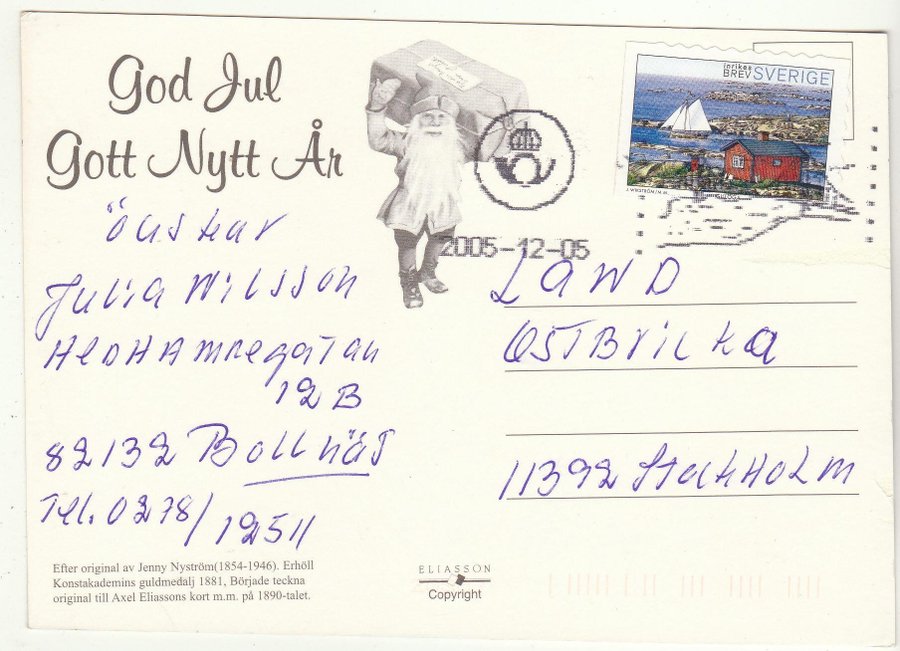 God Jul
Gott Nytt År
önskar
Julia Nilsson
Hedhamregatan
12 B
82132 Bollnäs
Tel. 0278/
12511
Efter original av Jenny Nyström(1854-1946). Erhöll
Konstakademins guldmedalj 1881, Började teckna
original till Axel Eliassons kort m.m. på 1890-talet.
ELIASSON
Copyright
inrikes
BREV SVERIGE
2005-12-05
LAND
OSTBRICKA
11392 Stockholm